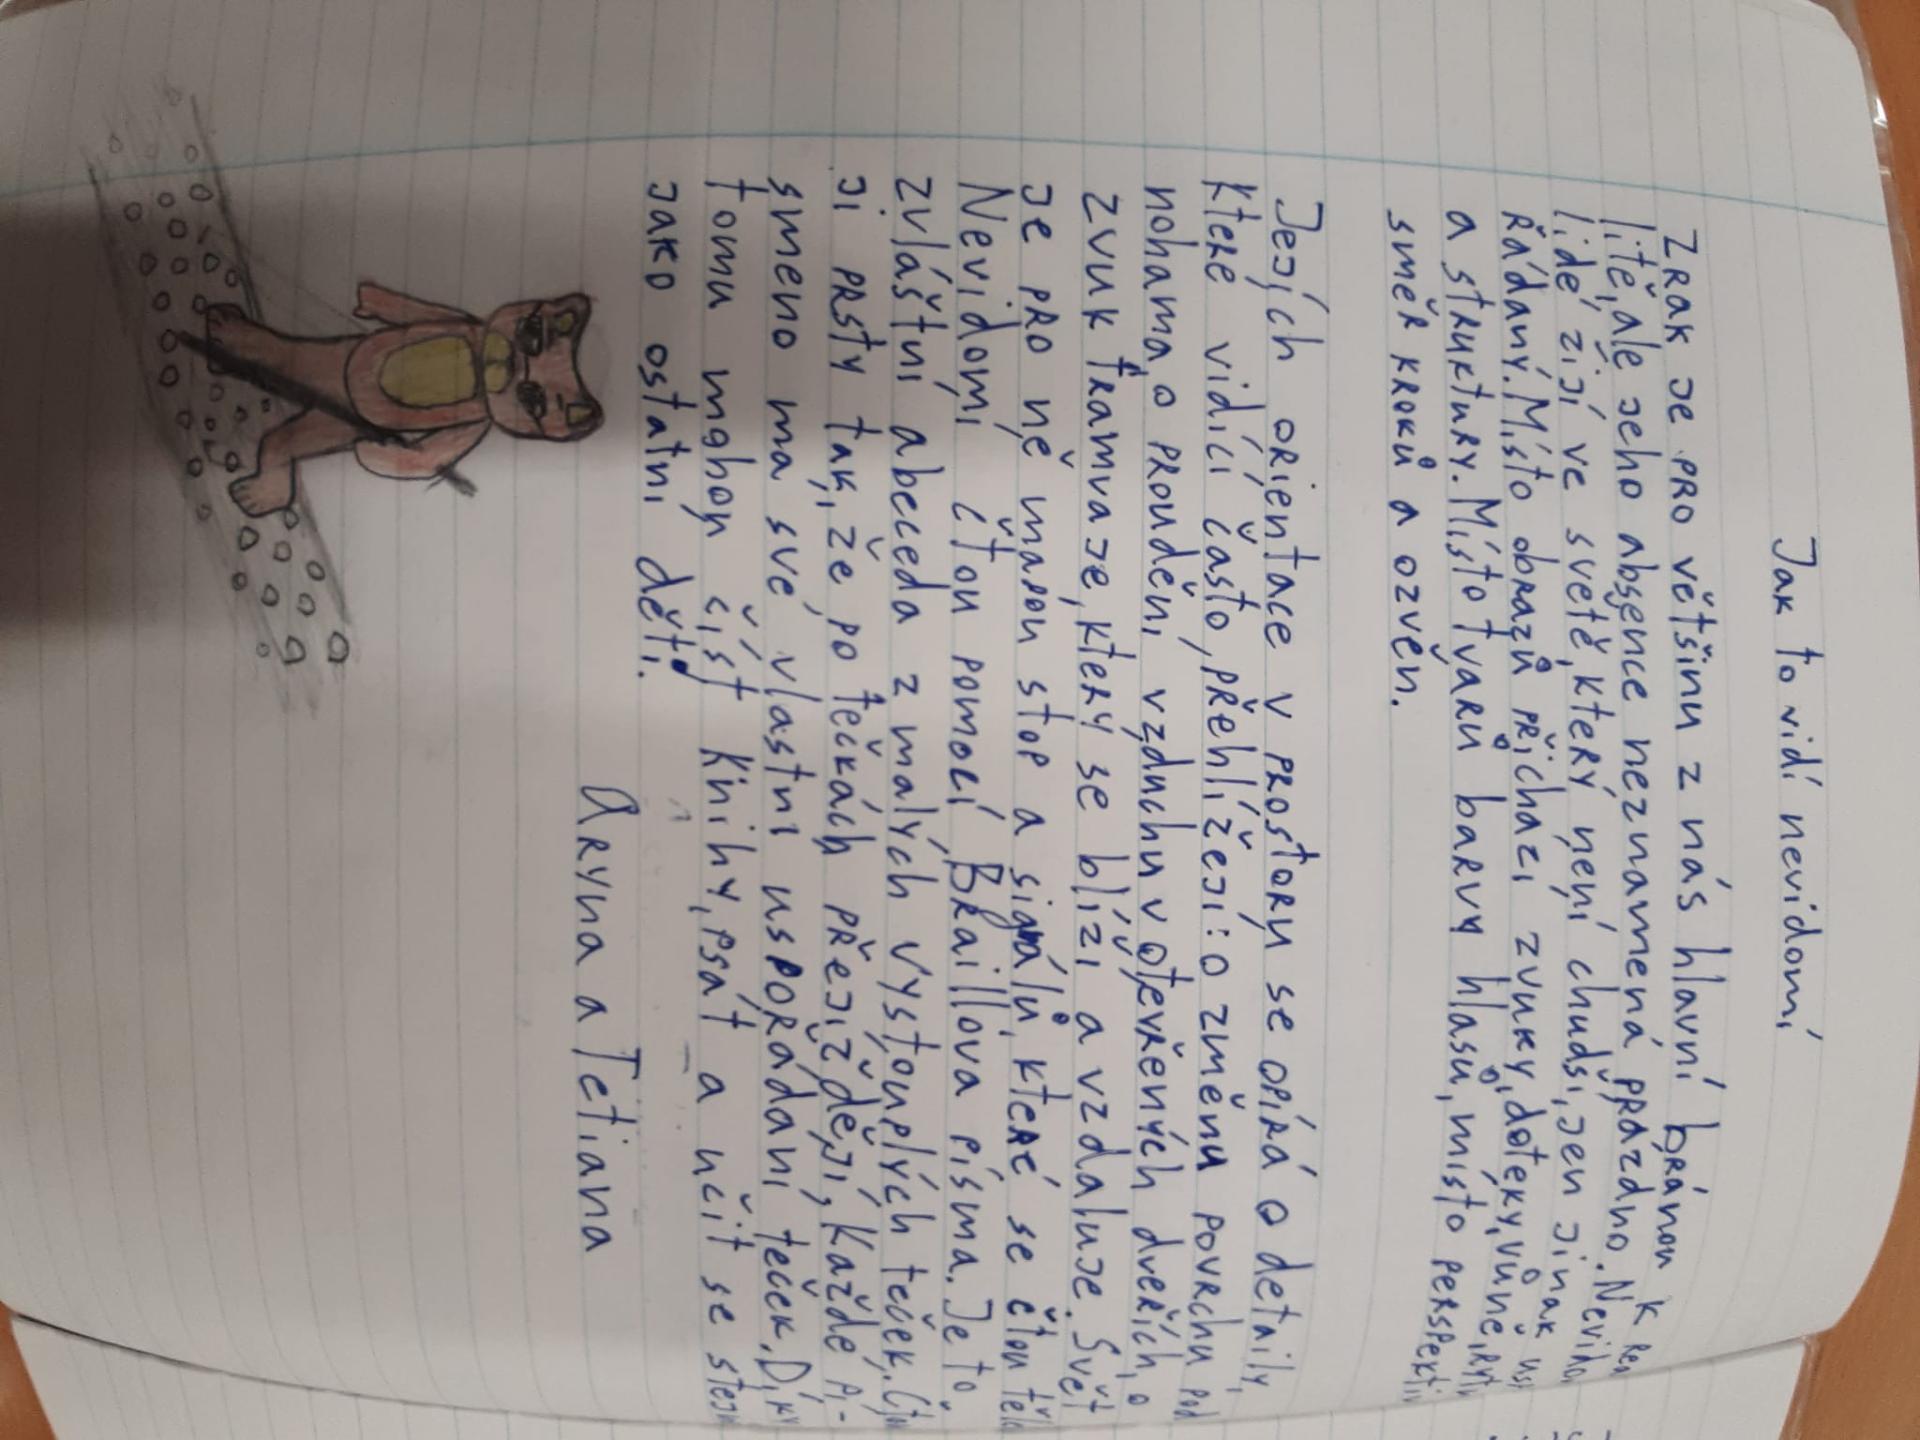 Jak to vidí nevidomí
Zrak je pro většinu z nás hlavní bránou k
litě, ale jeho absence neznamená prázdno.
lidé žijí ve světě, který není chudší, jen jinak
řádaný. Místo obrazů přichází zvuky, doteky, vůně,
a struktury. Místo tvarů barvy hlasů, místo
směr kroků a ozvěn.
Jejich orientace v prostoru se opírá o detaily,
které vidící často přehlížejí: o změnu povrchu pod
nohama, o proudění vzduchu v otevřených dveřích, o
zvuk tramvaje, který se blíží a vzdaluje. Svět
je pro ně mapou stop a signálů, které se čtou
Nevidomí čtou pomocí Braillova písma. Je to
zvláštní abeceda z malých vystouplých teček.
ji prsty tak, že po tečkách přejíždějí, Každé pí-
smeno má své vlastní uspořádání teček.
tomu mohou číst knihy, psát a učit se
jako ostatní děti.
Aryna a Tetiana